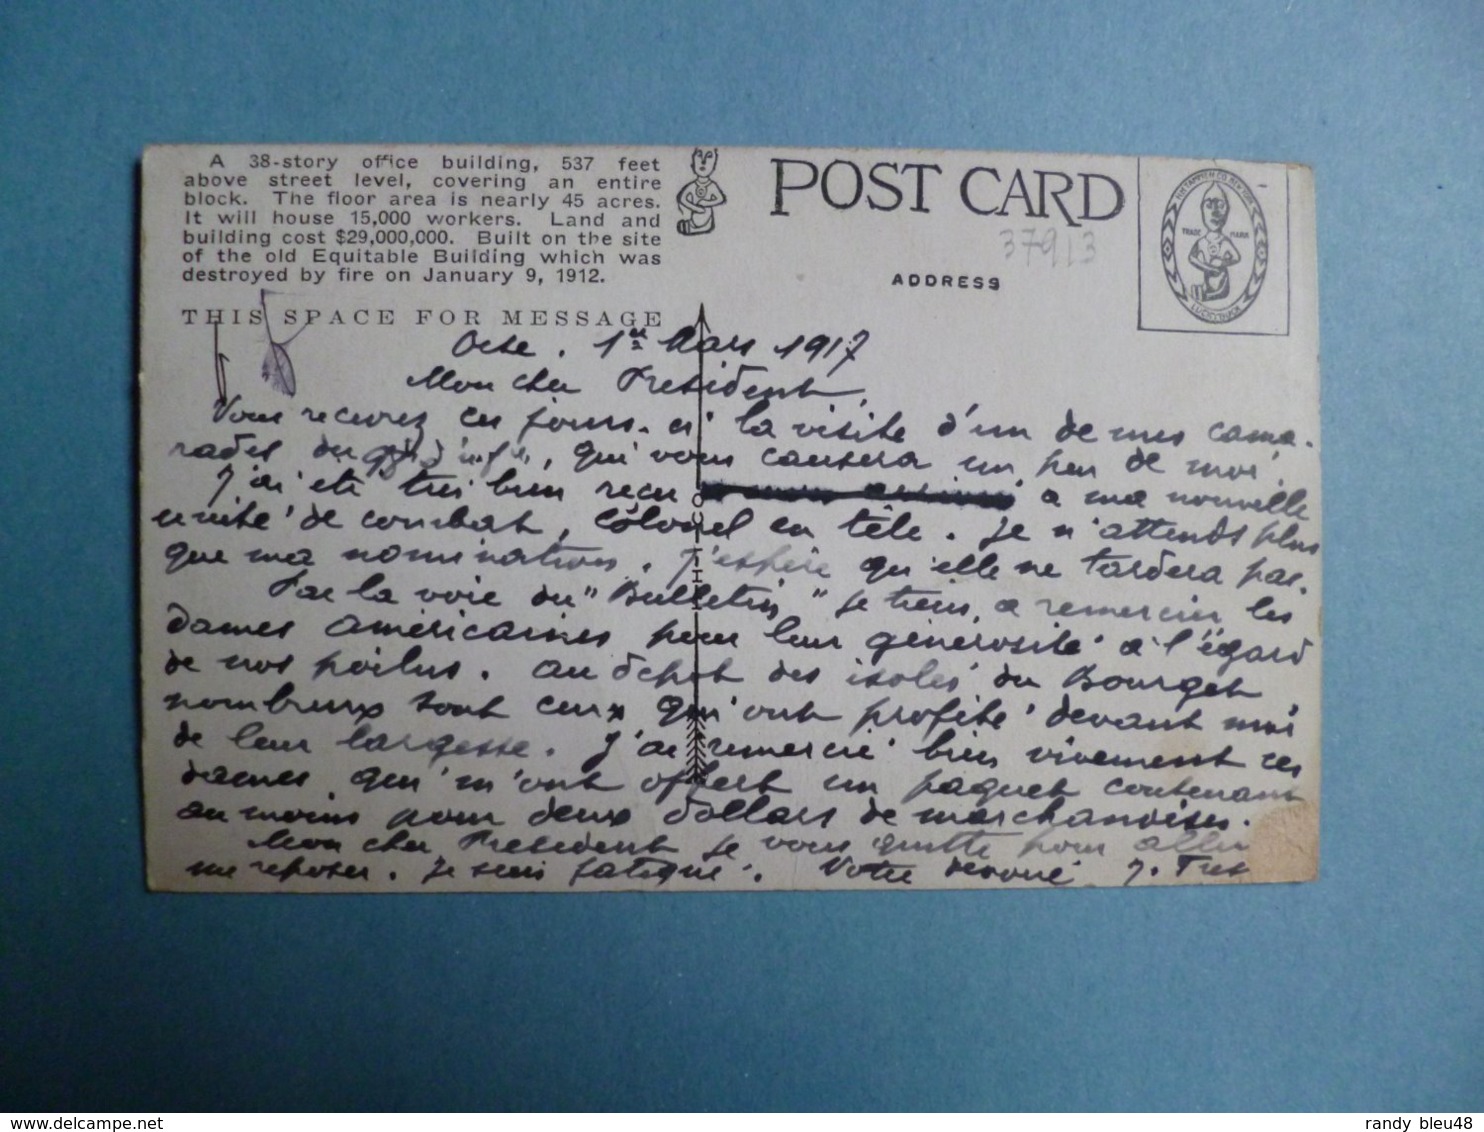 A 38-story office building, 537 feet
above street level, covering an entire
block. The floor area is nearly 45 acres.
It will house 15,000 workers. Land and
building cost $29,000,000. Built on the site
of the old Equitable Building which was
destroyed by fire on January 9, 1912.
POST CARD
37913
ADDRESS
THE TAMMEN CO. NEW YORK
TRADE MARK
THIS SPACE FOR MESSAGE
1er Mars 1917
Mon cher President,
Vous recevrez ces jours-ci la visite d'un de mes cama-
rades du, qui vous causera un peu de moi.
J'ai été très bien reçu à ma nouvelle
unité de combat, colonel en tête. Je n'attends plus
que ma nomination. J'espère qu'elle ne tardera pas.
Par la voie du "Bulletin" je tiens à remercier les
dames américaines pour leur générosité à l'égard
de nos poilus. Au dépot des isolés du Bourget
nombreux sont ceux qui ont profité devant moi
de leur largesse. J'ai remercié bien vivement ces
dames qui m'ont offert un paquet contenant
au moins pour deux dollars de marchandises.
Mon cher President je vous quitte pour aller
me reposer. Je suis fatigué. Votre dévoué J.
randy bleu48